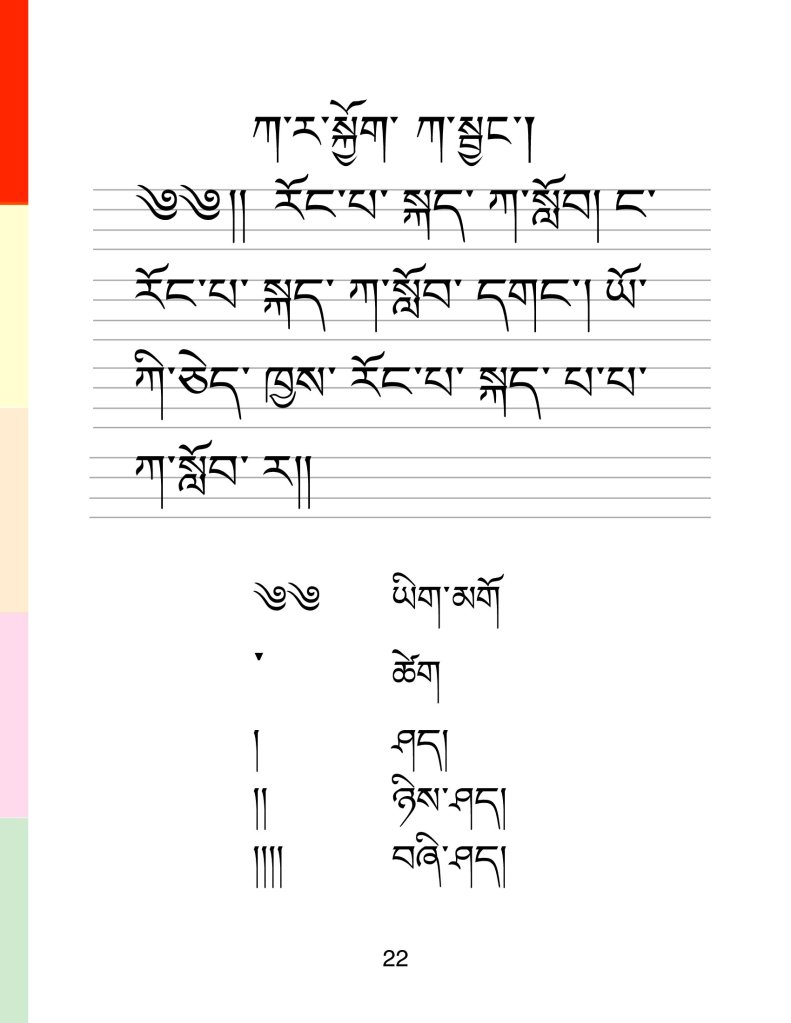 ཀ་ར་སྐྱོག་ ཀ་སྦྱང་།
༄༄།། རོང་པ་ སྐད་ ཀ་སློབ། ང་
རོང་པ་ སྐད་ ཀ་སློབ་ དགང་། ཡོ་
ཀི་ཅེད་ ཁྱས་ རོང་པ་ སྐད་ པ་པ་
ཀ་སློབ་ ར།།
༄༄ ཡིག་མགོ
་ ཚེག
། ཤད།
།། ཉིས་ཤད།
།།།། བཞི་ཤད།
22